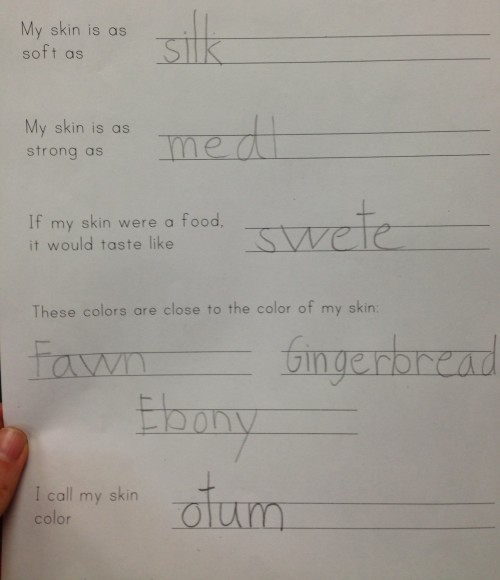 My skin is as
soft as silk
My skin is as
strong as medl
If my skin were a food,
it would taste like swete
These colors are close to the color of my skin:
Fawn Gingerbread
Ebony
I call my skin
color otum